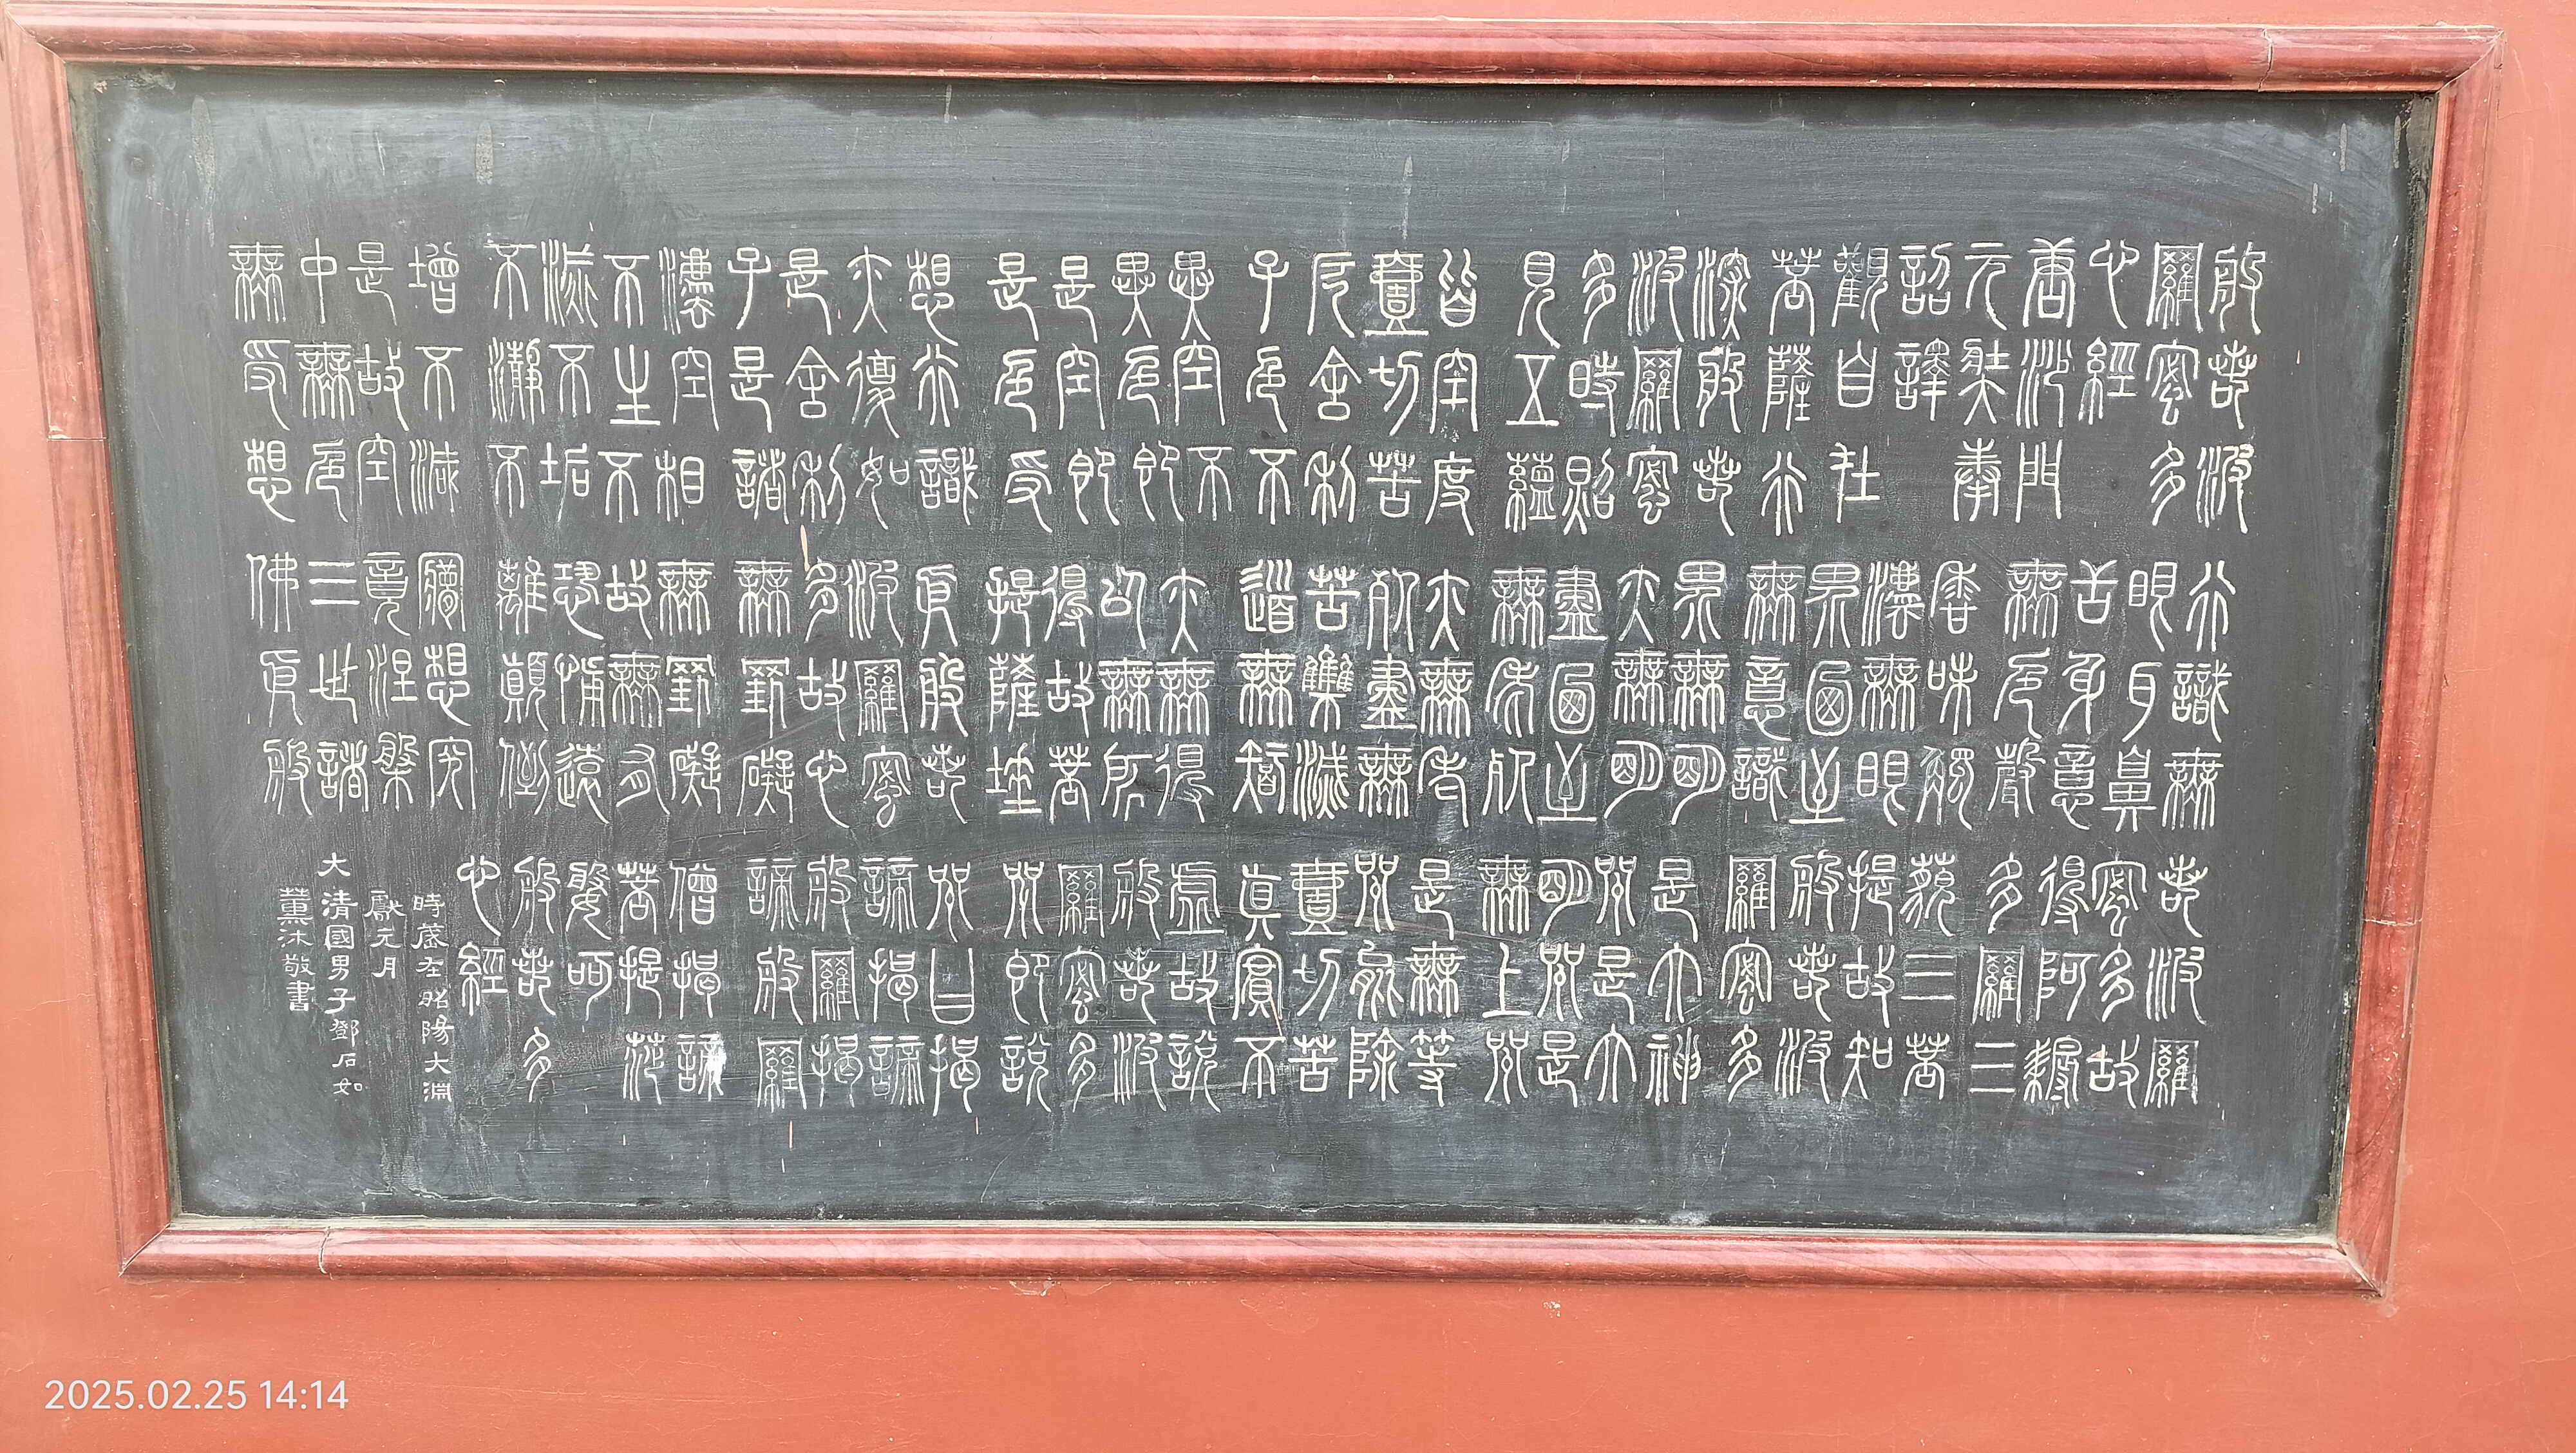 般若波
羅蜜多
心經
唐沙門
元奘奉
詔譯
觀自在
菩薩行
深般若
波羅蜜
多時照
見五蘊
皆空度
壹切苦
厄舍利
子色不
異空不
異色即
是空即
是色受
想行識
亦復如
是舍利
子是諸
法空相
不生不
滅不垢
不瀞不
增不減
是故空
中無色
無受想
行識無
眼耳鼻
舌身意
無色聲
香味觸
灋無眼
界乃至
無意識
界無明
亦無明
盡乃至
無老死
亦無老
死盡無
苦集滅
道無智
亦無得
以無所
得故菩
提薩埵
依般若
波羅蜜
多故心
無罣礙
無罣礙
故無有
恐怖遠
離顛倒
夢想究
竟涅槃
三世諸
佛依般
若波羅
蜜多故
得阿耨
多羅三
藐三菩
提故知
般若波
羅蜜多
是大神
咒是大
明咒是
無上咒
是無等
咒能除
壹切苦
真實不
虛故說
般若波
羅蜜多
咒即說
咒曰揭
諦揭諦
般羅揭
諦般羅
僧揭諦
菩提莎
婆呵
般若多
心經
時蓋在昭陽大淵
獻元月
大清國男子鄧石如
薰沐敬書
2025.02.25 14:14